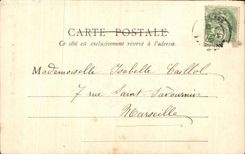 CARTE POSTALE
Ce côté est exclusivement réservé à l'adresse.
Mademoiselle Isabelle Caillol
7 rue Saint-Savournin
Marseille